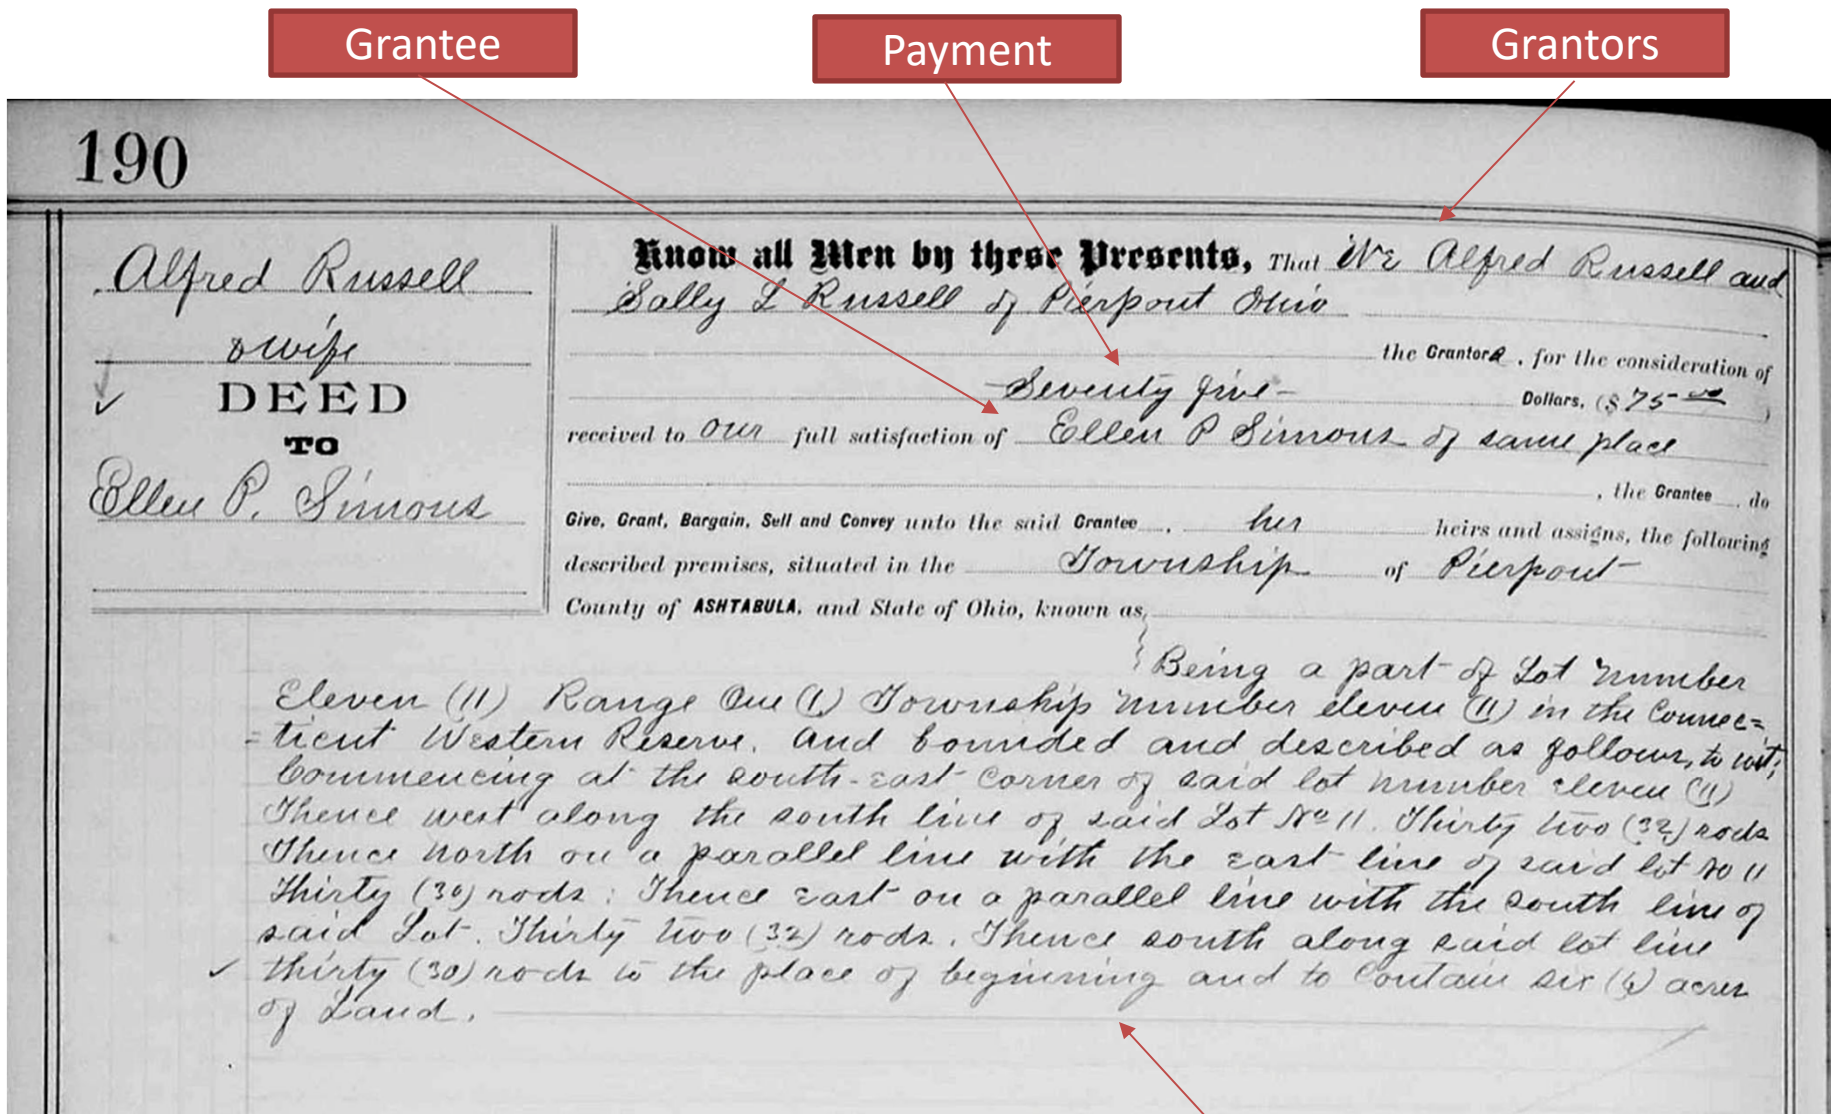 Grantee
Payment
Grantors
190
Alfred Russell
& wife
DEED
TO
Ellen P. Simons
Know all Men by these Presents, That We Alfred Russell and
Sally L Russell of Pierpont Ohio
the Grantors, for the consideration of
Seventy five Dollars, ($75 00)
received to our full satisfaction of Ellen P Simons of same place
, the Grantee do
Give, Grant, Bargain, Sell and Convey unto the said Grantee, her heirs and assigns, the following
described premises, situated in the Township of Pierpont
County of ASHTABULA, and State of Ohio, known as
Being a part of Lot number
Eleven (11) Range One (1) Township number eleven (11) in the Connec=
=ticut Western Reserve. And bounded and described as follows, to wit;
Commencing at the south-east corner of said lot number eleven (11)
Thence west along the south line of said Lot No 11. Thirty two (32) rods
Thence north on a parallel line with the east line of said lot No 11
Thirty (30) rods; Thence east on a parallel line with the south line of
said Lot. Thirty two (32) rods. Thence south along said lot line
thirty (30) rods to the place of beginning and to contain six (6) acres
of Land.